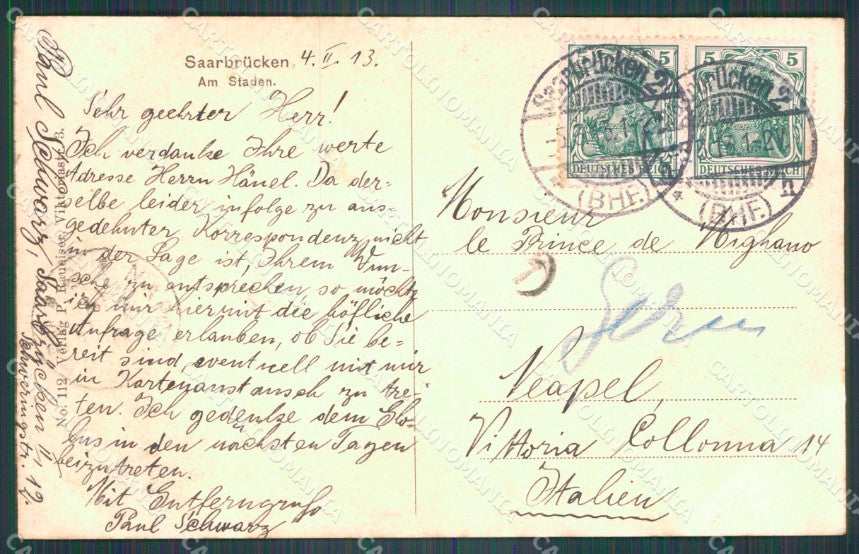 Saarbrücken 4. II. 13.
Am Staden.
Sehr geehrter Herr!
Ich verdanke Ihre werte
Adresse Herrn Hänel. Da der-
selbe leider infolge zu aus-
gedehnter Korrespondenz nicht
in der Lage ist, Ihrem Wun-
sche zu entsprechen so möchte
ich mir hiermit die höfliche
Anfrage erlauben, ob Sie be-
reit sind eventuell mit mir
in Kartenaustausch zu tre-
ten. Ich gedenke dem Glo-
bus in den nächsten Tagen
beizutreten.
Mit Entferngruß
Paul Schwarz
Paul Schwarz, Saarbrücken II, 19.
Schwerinstr. 12.
No. 112 Verlag P. Viktoriastr. 8.
5 5
DEUTSCHES REICH DEUTSCHES REICH
Saarbrücken 2
(BHF.)
Saarbrücken 2
(BHF.)
Monsieur
le Prince de Mighano
Neapel,
Vittoria Collonna 14
Italien
CARTOLINOMANIA